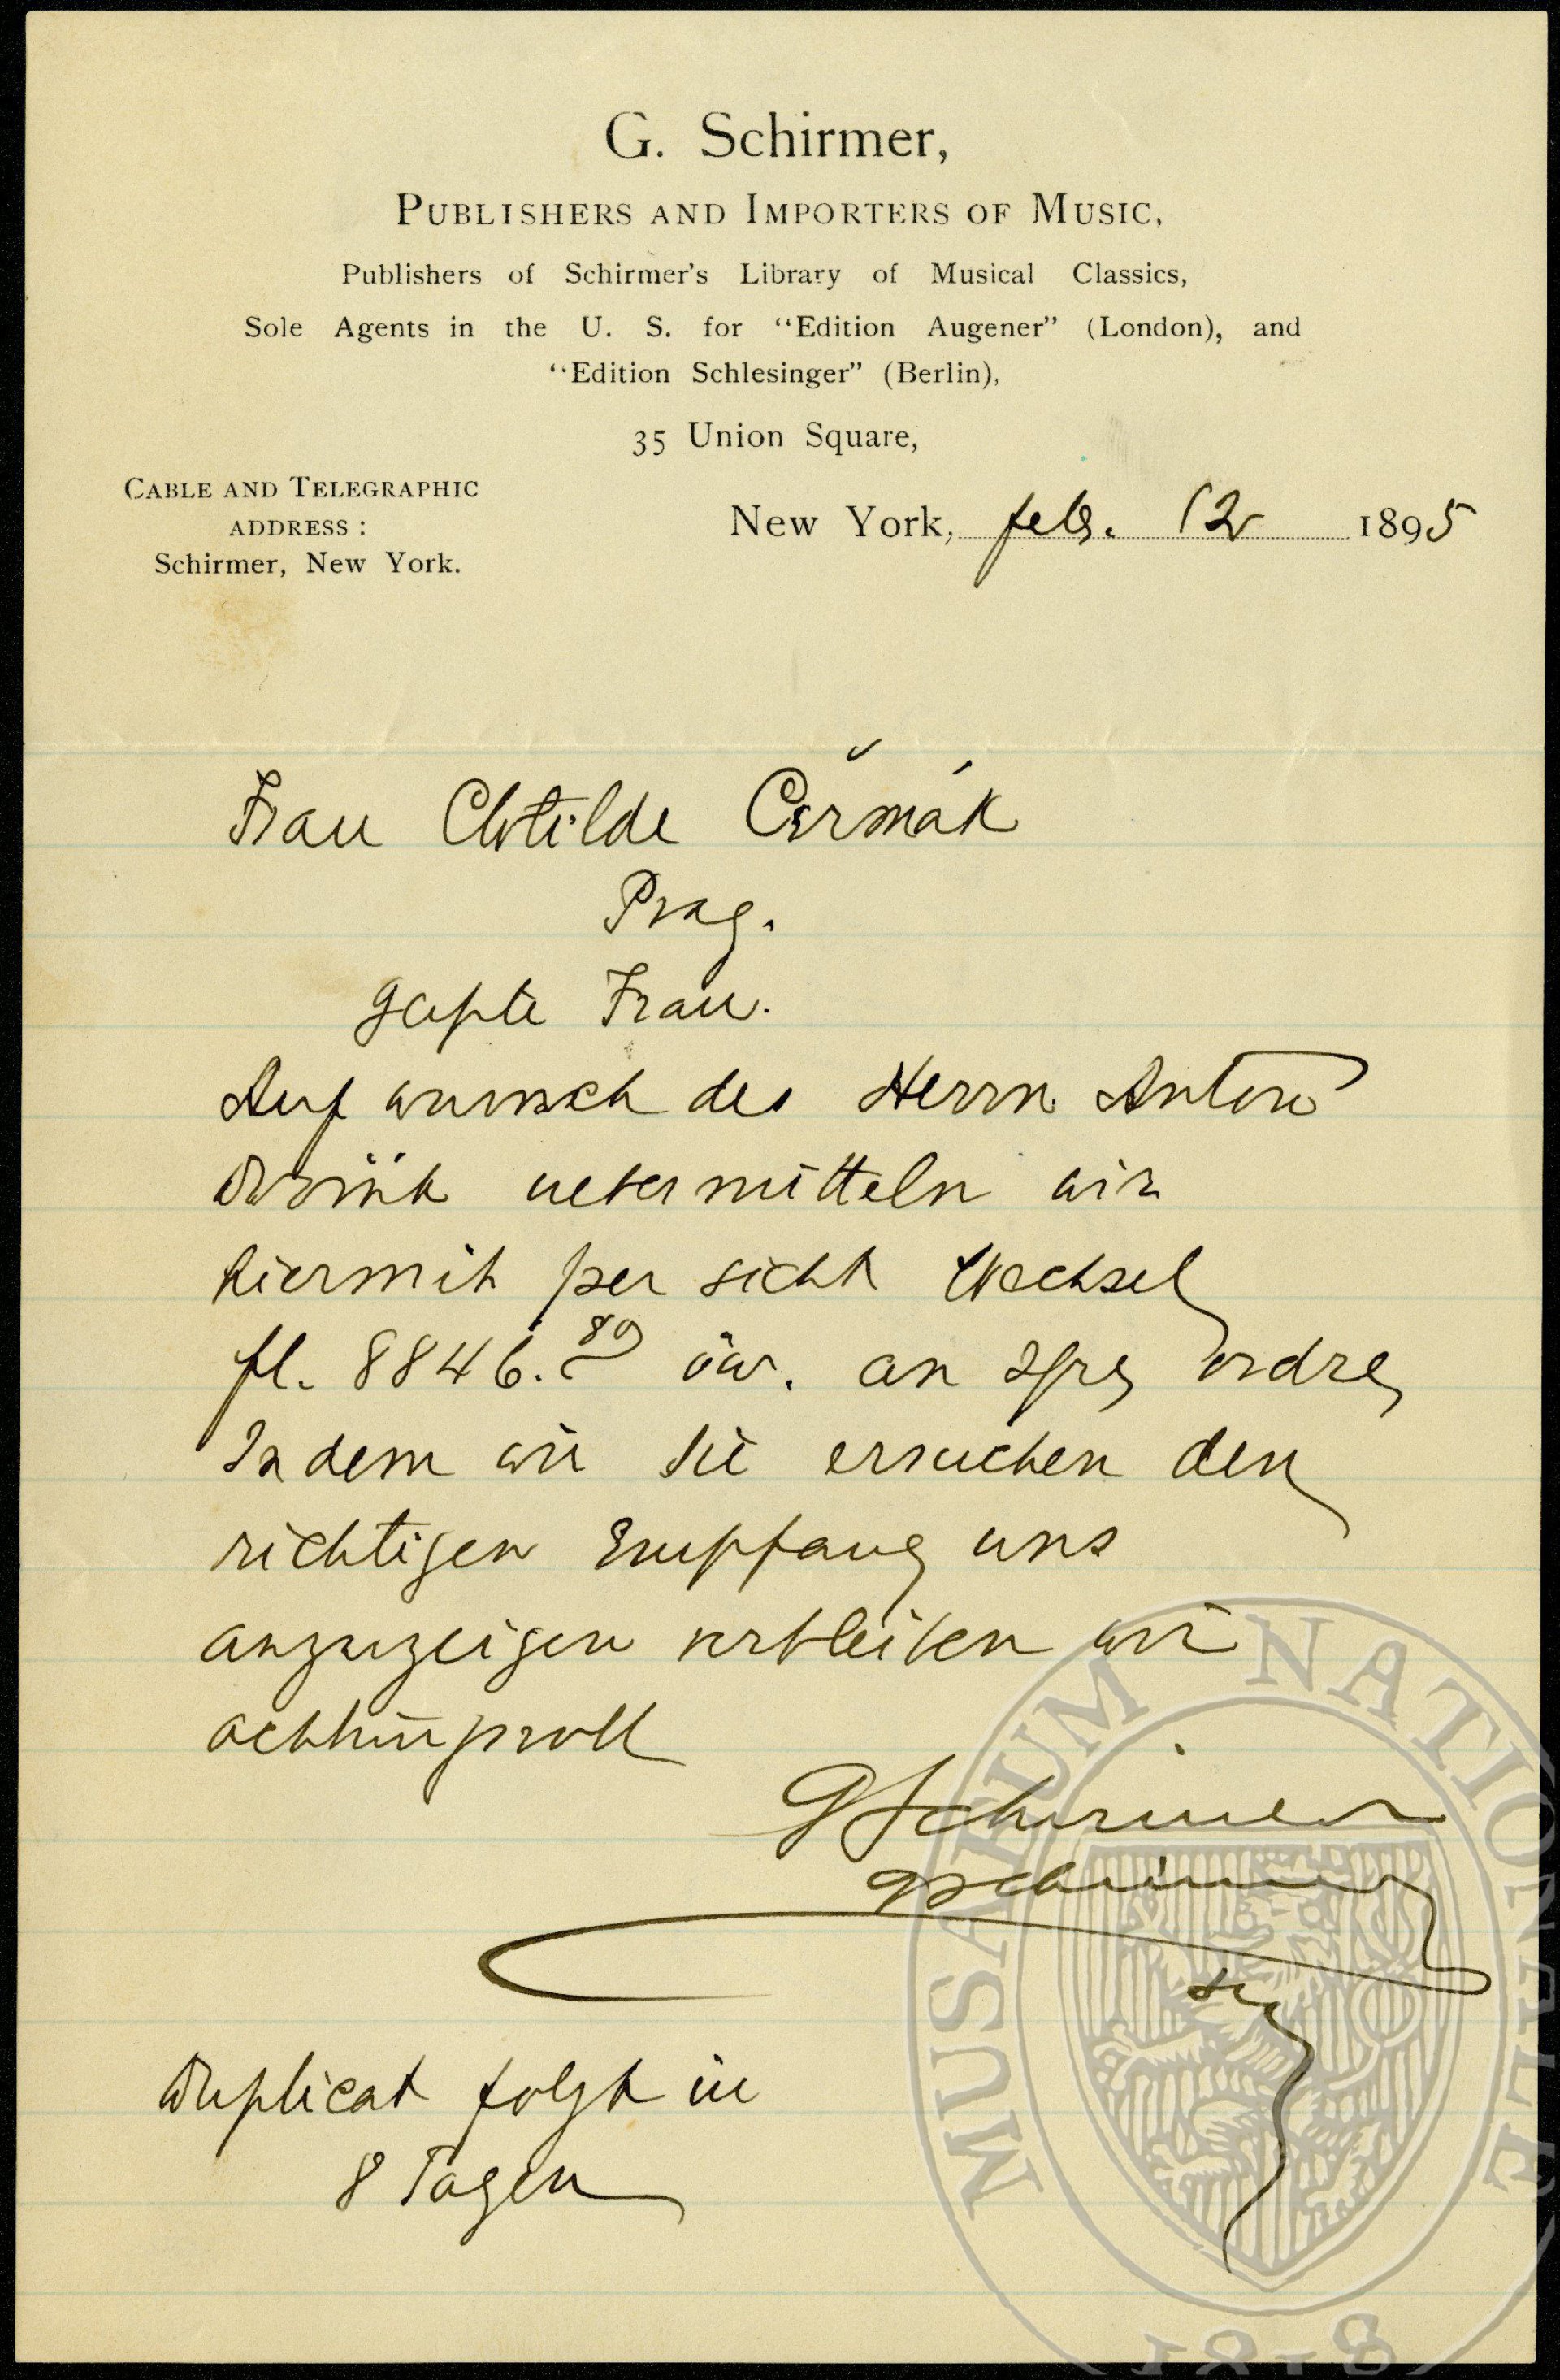 G. Schirmer,
Publishers and Importers of Music,
Publishers of Schirmer's Library of Musical Classics,
Sole Agents in the U. S. for "Edition Augener" (London), and
"Edition Schlesinger" (Berlin),
35 Union Square,
Cable and Telegraphic
address:
Schirmer, New York.
New York, febr. 12 1895
Frau Clotilde Čermák
Prag.
Frau.
Auf wunsch des Herrn Anton
Dvořák uebermitteln wir
hiermit per sicht Wechsel
fl. 8846.89 öw. an Ihre ordre
Indem wir Sie ersuchen den
richtigen Empfang uns
anzuzeigen verbleiben wir
achtungsvoll
G Schirmer
G Schirmer
Duplicat folgt in
8 Tagen
MUSAEUM NATIONALE
1818